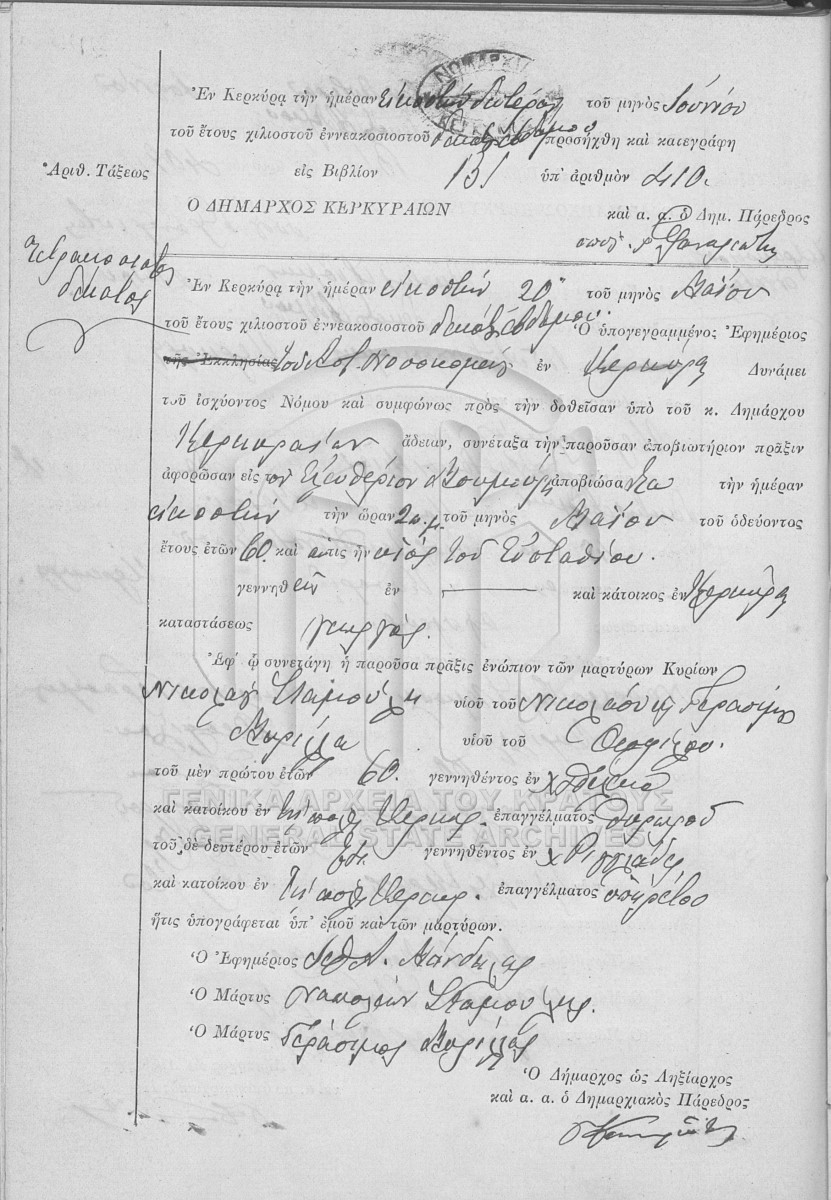 ΝΟΜΑΡΧΙ
ΚΕΡΚΥΡ
Ἐν Κερκύρᾳ τὴν ἡμέραν εἰκοστὴν δευτέραν τοῦ μηνὸς Ἰουνίου
τοῦ ἔτους χιλιοστοῦ ἐννεακοσιοστοῦ δεκάτου ἑβδόμου προσήχθη καὶ κατεγράφη
Ἀριθ. Τάξεως εἰς Βιβλίον 131 ὑπ' ἀριθμὸν 410.
Ὁ ΔΗΜΑΡΧΟΣ ΚΕΡΚΥΡΑΙΩΝ
καὶ α. α. ὁ Δημ. Πάρεδρος
τετρακοσιοστὸς
δέκατος
Ἐν Κερκύρᾳ τὴν ἡμέραν εἰκοστὴν 20 τοῦ μηνὸς Μαΐου
τοῦ ἔτους χιλιοστοῦ ἐννεακοσιοστοῦ δεκάτου ἑβδόμου. Ὁ ὑπογεγραμμένος Ἐφημέριος
τῆς Ἐκκλησίας τοῦ Νοσοκομείου ἐν Κερκύρᾳ Δυνάμει
τοῦ ἰσχύοντος Νόμου καὶ συμφώνως πρὸς τὴν δοθεῖσαν ὑπὸ τοῦ κ. Δημάρχου
Κερκυραίων ἄδειαν, συνέταξα τὴν παροῦσαν ἀποβιωτήριον πρᾶξιν
ἀφορῶσαν εἰς τὸν Ἐλευθέριον ἀποβιώσαντα τὴν ἡμέραν
εἰκοστὴν τὴν ὥραν 2 π.μ. τοῦ μηνὸς Μαΐου τοῦ ὁδεύοντος
ἔτους ἐτῶν 60. καὶ ὅστις ἦν υἱὸς τοῦ Εὐσταθίου.
γεννηθεὶς ἐν — καὶ κάτοικος ἐν Κερκύρᾳ
καταστάσεως γεωργός.
Ἐφ' ᾧ συνετάγη ἡ παροῦσα πρᾶξις ἐνώπιον τῶν μαρτύρων Κυρίων
Σταμούλη υἱοῦ τοῦ Νικολάου καὶ Γερασίμου
Μωρίλλα υἱοῦ τοῦ
τοῦ μὲν πρώτου ἐτῶν 60. γεννηθέντος ἐν
καὶ κατοίκου ἐν τῇ πόλει Κερκύρ. ἐπαγγέλματος θυρωροῦ
τοῦ δὲ δευτέρου ἐτῶν γεννηθέντος ἐν
καὶ κατοίκου ἐν τῇ πόλει Κερκύρ. ἐπαγγέλματος ὑπηρέτου
ἥτις ὑπογράφεται ὑπ' ἐμοῦ καὶ τῶν μαρτύρων.
Ὁ Ἐφημέριος
Ὁ Μάρτυς Σταμούλης.
Ὁ Μάρτυς Γεράσιμος Μωρίλλας
Ὁ Δήμαρχος ὡς Ληξίαρχος
καὶ α. α. ὁ Δημαρχιακὸς Πάρεδρος
ΓΕΝΙΚΑ ΑΡΧΕΙΑ ΤΟΥ ΚΡΑΤΟΥΣ
GENERAL STATE ARCHIVES